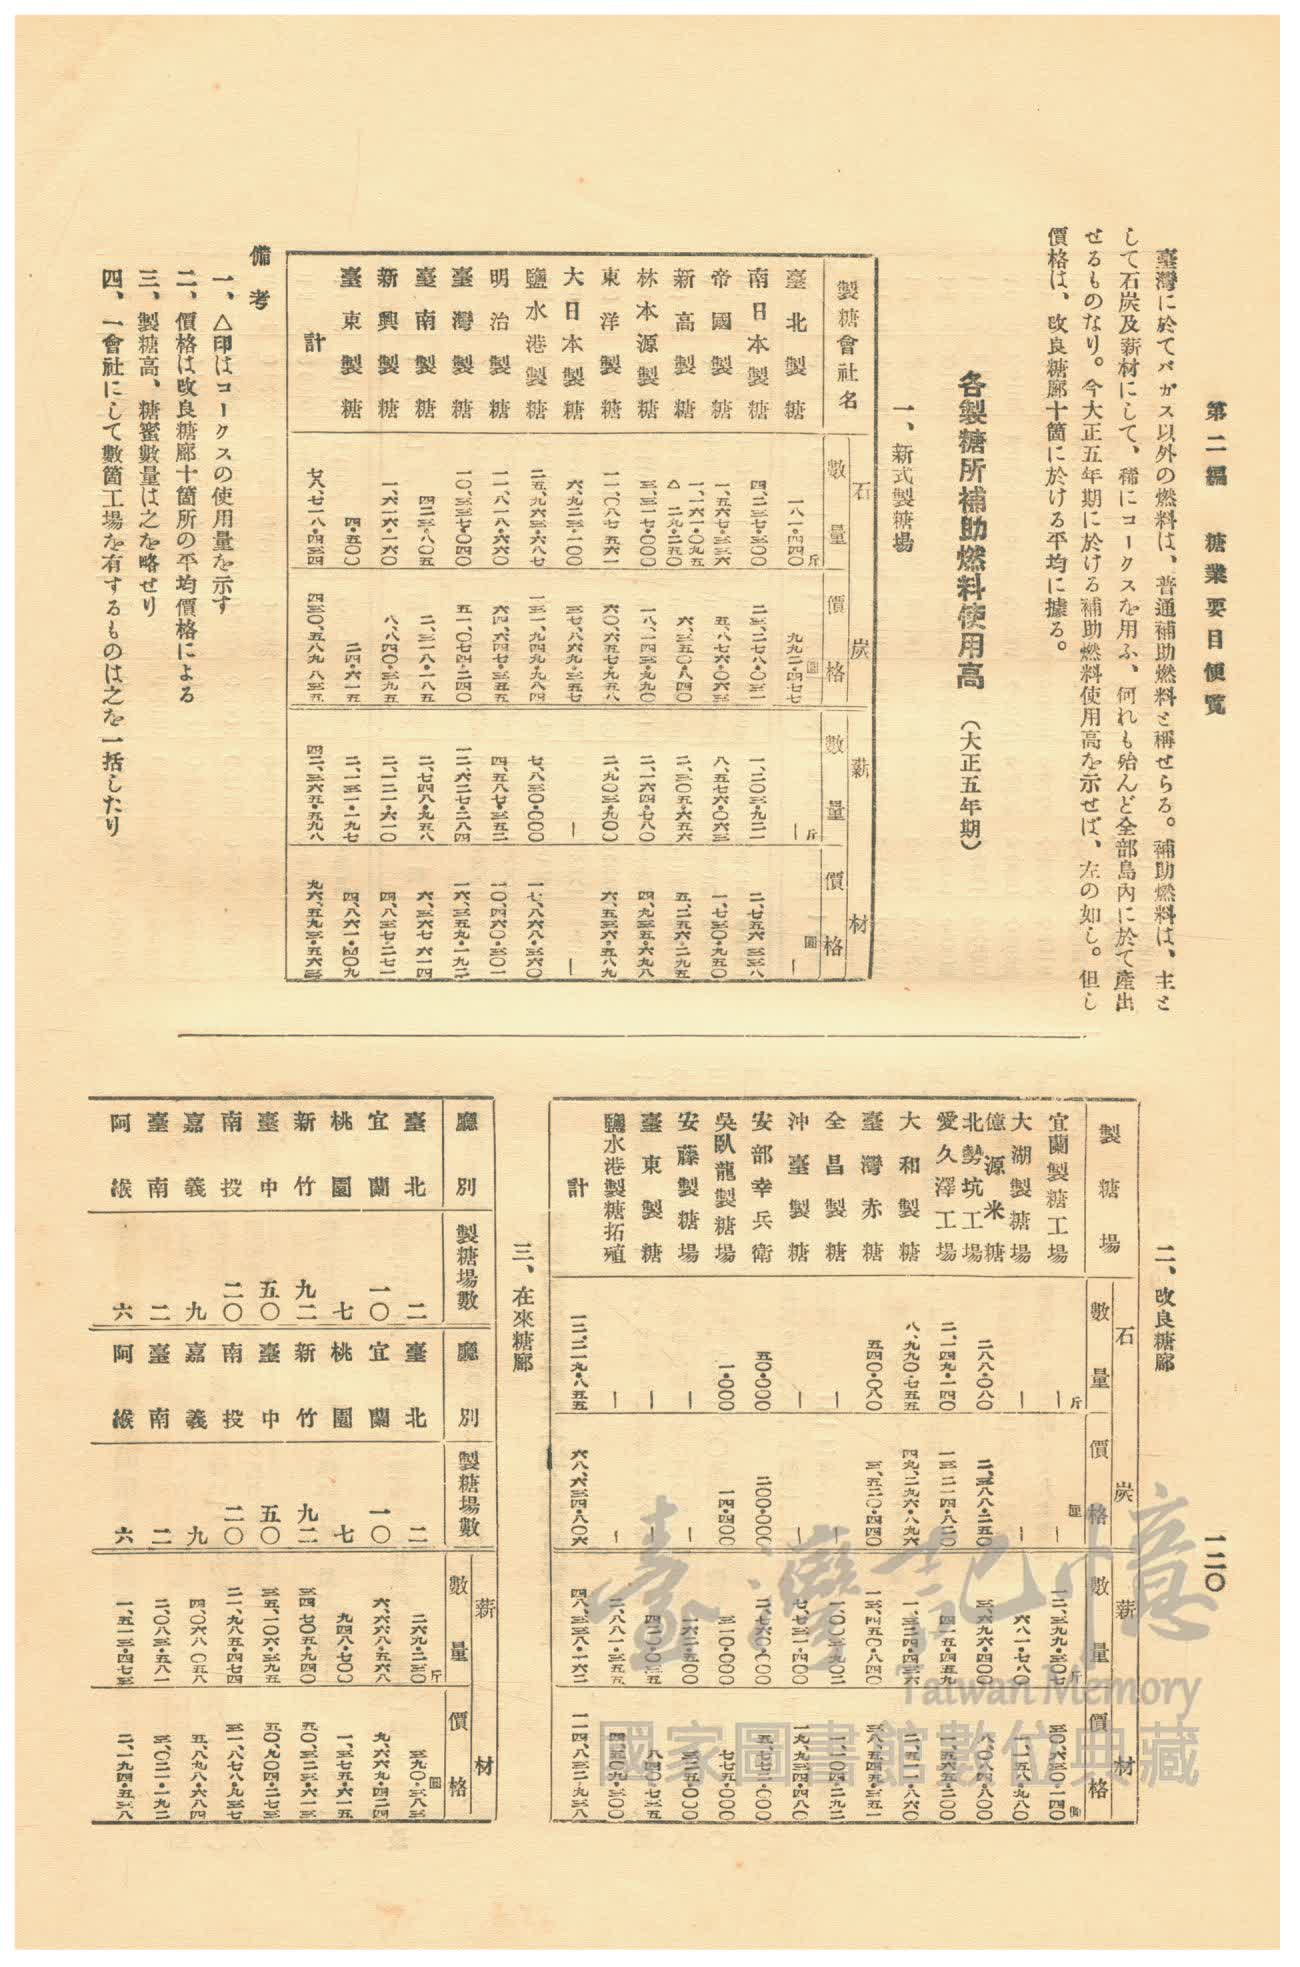 第二編　糖業要目便覽
一二〇
臺灣に於てバガス以外の燃料は、普通補助燃料と稱せらる。補助燃料は、主と
して石炭及薪材にして、稀にコークスを用ふ、何れも殆んど全部島內に於て產出
せるものなり。今大正五年期に於ける補助燃料使用高を示せば、左の如し。但し
價格は、改良糖廍十箇に於ける平均に據る。
各製糖所補助燃料使用高（大正五年期）
一、新式製糖場
製糖會社名　石炭　數量　價格　薪材　數量　價格
臺北製糖　一八一・四四〇斤　九九二・四七七圓　―斤　―圓
南日本製糖　四、二三七・三〇〇　二三、二七八・〇三一　一、二〇三・九二一　二、七五六・三三八
帝國製糖　一、五六七・三三六　五、八七六・〇六三　八、五七六・〇六三　一、七三〇・九五〇
新高製糖　一、一六一・〇九五　△二九・二五〇　六、三五〇・八四〇　二、三〇五・六五六　五、二五六・二九五
林本源製糖　三、三一七・〇〇〇　一八、一四三・九九〇　二、一六四・七八〇　四、九三五・六九八
東洋製糖　一一、〇八七・五六一　六〇、六五七・九五八　二、九〇三・九〇〇　六、五三六・五八九
大日本製糖　六、九二三・一〇〇　三七、八六九・三五七　―　―
鹽水港製糖　二五、九六三・六八七　一三一、九四九・九八四　七、八三〇・〇〇〇　一七、八六八・三六〇
明治製糖　一一、八一八・六六〇　六四、六四七・三五五　四、五八七・三五二　一〇、四六〇・三〇一
臺灣製糖　一〇、三三七・〇四〇　五一、〇七四・二四〇　一一、六二七・二八四　一六、三五九・一九二
臺南製糖　四二三・八〇五　二、三一八・一八五　二、七四八・九五八　六、三六七・六一四
新興製糖　一、六一六・一六〇　八、八四〇・三九五　二、一二一・六一〇　四、八三七・二七一
臺東製糖　四・五〇〇　二四・六一五　二、一三一・一九七　四、八六一・四〇九
計　七八、七一八・四三四　四三〇、五八九・八三五　四二、三六五・五九八　九六、五九三・五六三
備考
一、△印はコークスの使用量を示す
二、價格は改良糖廍十箇所の平均價格による
三、製糖高、糖蜜數量は之を略せり
四、一會社にして數箇工場を有するものは之を一括したり
二、改良糖廍
製糖場　石炭　數量　價格　薪材　數量　價格
宜蘭製糖工場　―斤　―圓　一二、三九九・三〇七斤　三〇、六三〇・一四〇圓
大湖製糖場　―　―　六八一・七八〇　一、一五八・九八〇
億源米糖北勢坑工場　二八八・〇八〇　二、三八八・二五〇　三、六九六・四〇〇　八、〇八四・八〇〇
愛久澤工場　二、一四九・一四〇　一三、二一四・八二〇　四一五・四五九　一、五六五・二〇〇
大和製糖　八、九九〇・七五五　四九、二九六・八九六　一、三二四・四三六　二、五一一・八六〇
臺灣赤糖　五四〇・〇八〇　三、五二〇・四四〇　一三、四五〇・八四〇　三八、五四五・三五一
全昌製糖　―　―　一、〇〇三・九〇二　一、一〇四・二九二
沖臺製糖　―　―　七、七三一・四〇〇　一九、九三四・四八〇
安部幸兵衛　五〇・〇〇〇　二〇〇・〇〇〇　二、七六〇・〇〇〇　五、七七二・〇〇〇
吳臥龍製糖場　一・〇〇〇　一四・四〇〇　三一〇・〇〇〇　七七五・〇〇〇
安藤製糖場　―　―　一六二・五〇〇　三二五・〇〇〇
臺東製糖　―　―　四二〇・〇三五　八四〇・七三五
鹽水港製糖拓殖　―　―　二、八八一・三五五　四、五〇九・三〇〇
計　一二、二一九・八五五　六八、六三四・八〇六　四八、三三八・一六二　一一四、八三二・九三八
三、在來糖廍
廳別　製糖場數　廳別　製糖場數　薪材　數量　價格
臺北　二　臺北　二　二六九・二三〇斤　三九〇・三八三圓
宜蘭　一〇　宜蘭　一〇　六、六六八・五六八　九、六六九・四二四
桃園　七　桃園　七　九四八・七〇〇　一、三七五・六一五
新竹　九二　新竹　九二　三四、七〇五・九四〇　五〇、三二三・六一三
臺中　五〇　臺中　五〇　三五、一〇六・三九五　五〇、九〇四・二七三
南投　二〇　南投　二〇　二一、九八五・四七四　三一、八七八・九三七
嘉義　九　嘉義　九　四、〇六八・〇五八　五、八九八・六八四
臺南　二　臺南　二　二、〇八三・五八一　三、〇二一・一九二
阿緱　六　阿緱　六　一、五一三・四七三　二、一九四・五三八
臺灣記憶
Taiwan Memory
國家圖書館數位典藏